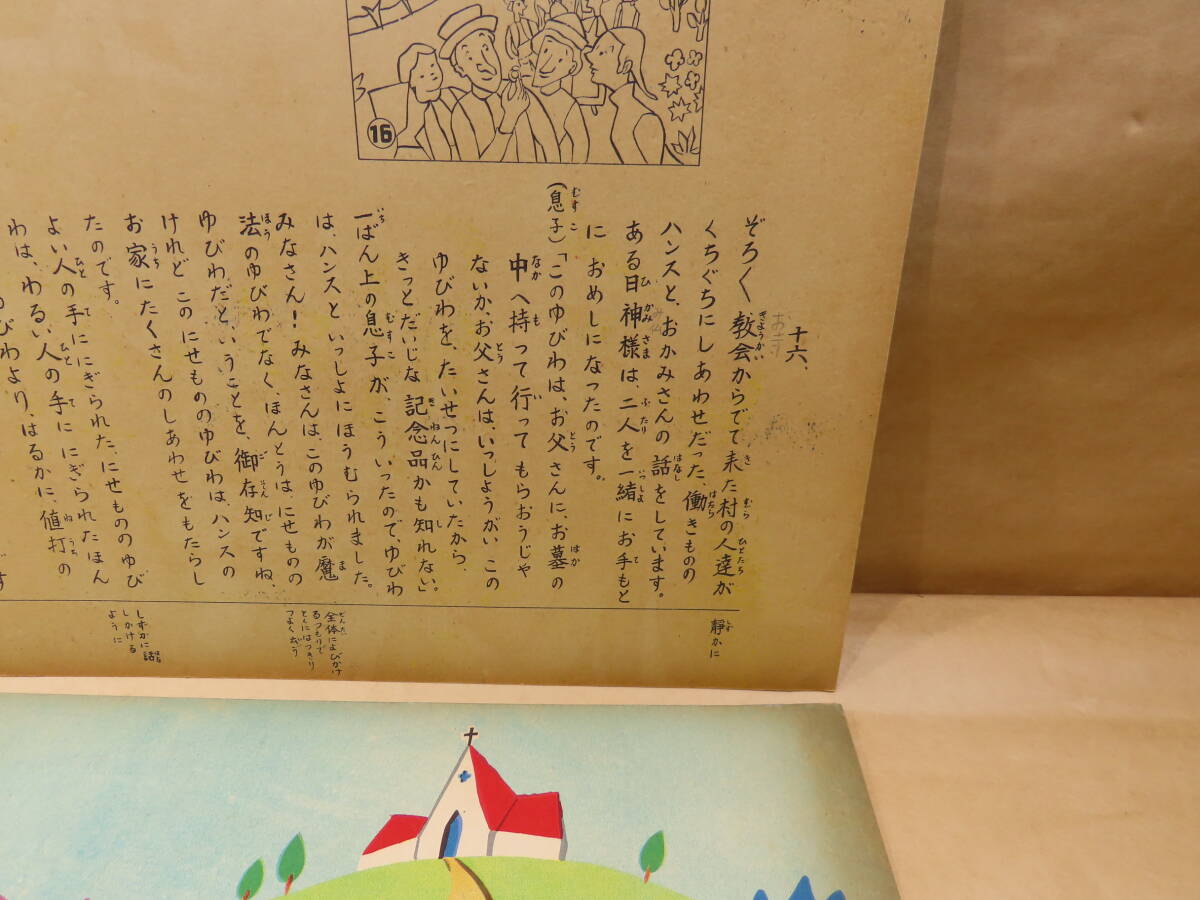 16
十六、
ぞろ〱教会からでて来た村の人達が
くちぐちにしあわせだった、働きものの
ハンスと、おかみさんの話をしています。
ある日神様は、二人を一緒にお手もと
に おめしになったのです。
(息子)「このゆびわは、お父さんに、お墓の
中へ持って行ってもらおうじゃ
ないか、お父さんは、いっしようがい この
ゆびわを、たいせつにしていたから、
きっとだいじな記念品かも知れない」。
一ばん上の息子が、こう いったので、ゆびわ
は、ハンスと いっしよにほうむられました。
みなさん!みなさんは、このゆびわが魔
法のゆびわでなく、ほんとうは、にせものの
ゆびわだと、いうことを、御存知ですね、
けれど このにせもののゆびわは、ハンスの
お家にたくさんのしあわせをもたらし
たのです。
よい人の手ににぎられた、にせもののゆび
わは、わるい人の手に にぎられたほん
びわより、はるかに、値打の
静かに
全体によびかけ
るつもりで
とくにはっきり
つよく云う
しずかに話
しかける
ように